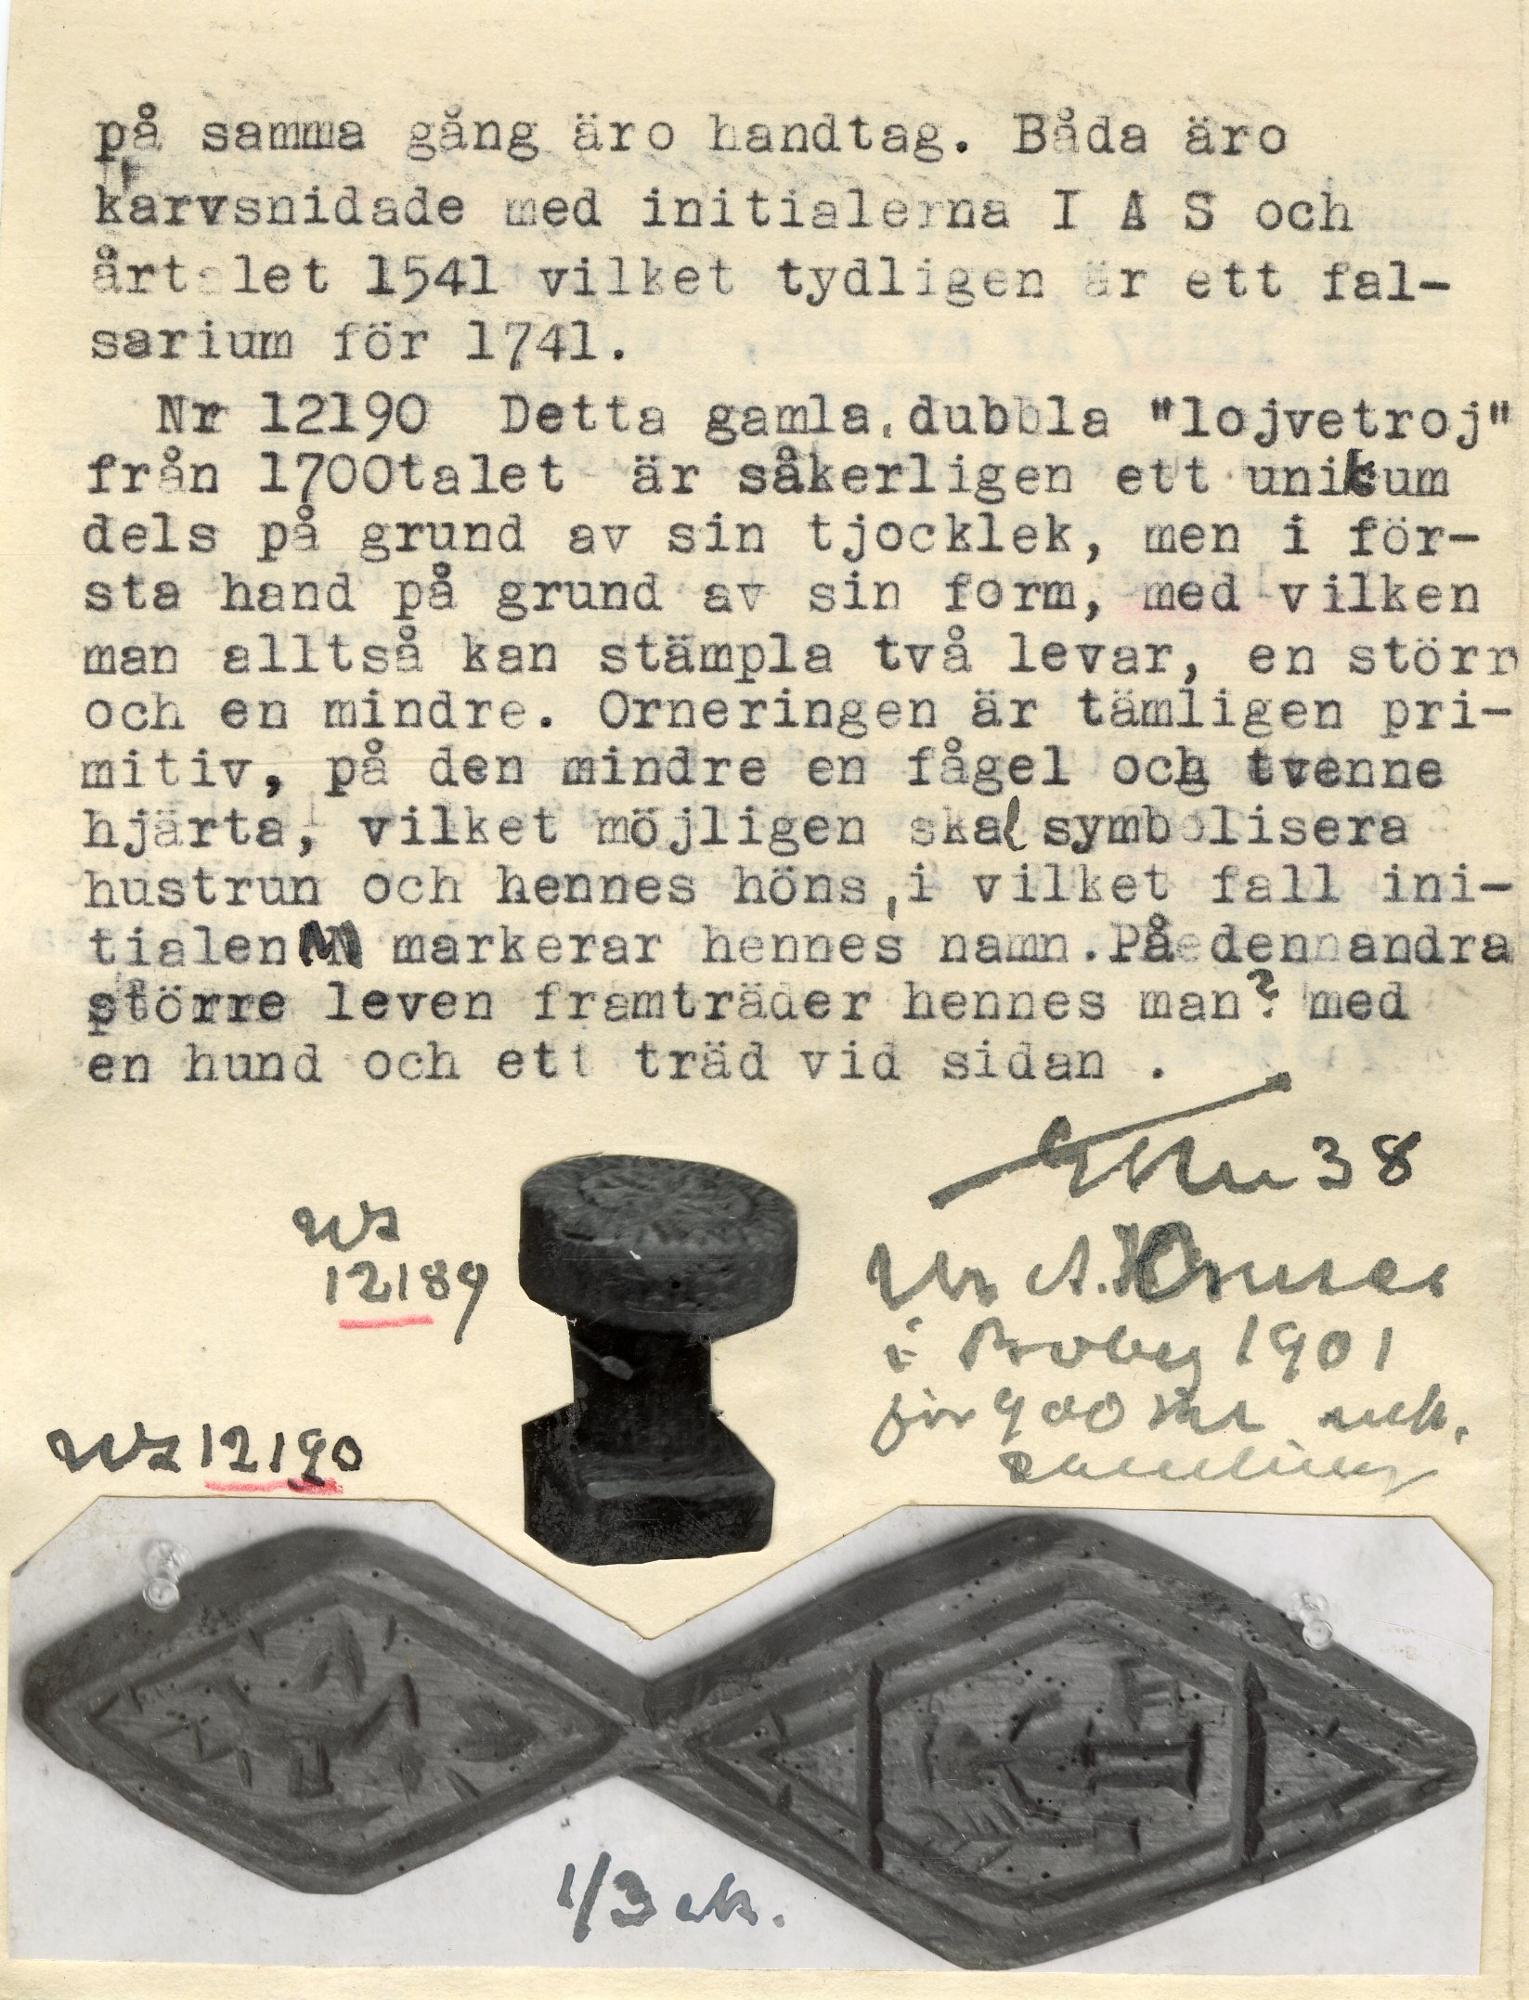 på samma gång äro handtag. Båda äro
karvsnidade med initialerna I A S och
årtalet 1541 vilket tydligen är ett fal-
sarium för 1741.
Nr 12190 Detta gamla, dubbla "lojvetroj"
från 1700talet är såkerligen ett unikum
dels på grund av sin tjocklek, men i för-
sta hand på grund av sin form, med vilken
man alltså kan stämpla två levar, en störr
och en mindre. Orneringen är tämligen pri-
mitiv, på den mindre en fågel och tvenne
hjärta, vilket möjligen skal symbolisera
hustrun och hennes höns, i vilket fall ini-
tialen M markerar hennes namn. På den andra
större leven framträder hennes man? med
en hund och ett träd vid sidan .
38
12189
A.
i Broby 1901
för 900
12190
1/3